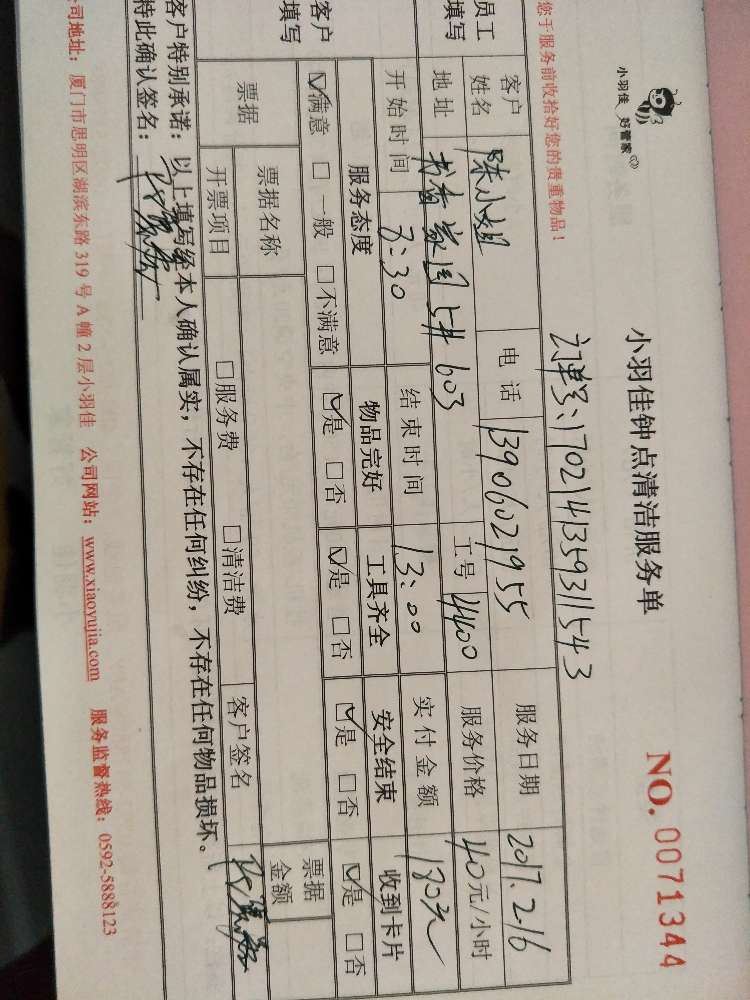 小羽佳 好管家
小羽佳钟点清洁服务单
NO. 0071344
您于服务前收拾好您的贵重物品！
订单号：1702141359311543
员工填写
客户姓名 陈小姐 电话 13906021955 服务日期 2017.2.16
地址 书香家园5# 603 工号 4400 服务价格 40元/小时
开始时间 8:30 结束时间 13:00 实付金额 180元
客户填写
服务态度 物品完好 工具齐全 安全结束 收到卡片
☑满意 □一般 □不满意 ☑是 □否 ☑是 □否 ☑是 □否 ☑是 □否
票据 票据名称 票据金额
开票项目 □服务费 □清洁费 客户签名
客户特别承诺：以上填写经本人确认属实，不存在任何纠纷，不存在任何物品损坏。
特此确认签名：
公司地址：厦门市思明区湖滨东路 319 号 A 幢 2 层小羽佳 公司网站：www.xiaoyujia.com 服务监督热线：0592-5888123